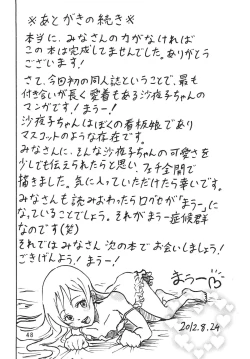 ※あとがきの続き※
本当に、みなさんの力がなければ
この本は完成してませんでした。ありがとう
ございます!
さて、今回初の同人誌ということで、最も
付き合いが長く愛着もある沙夜子ちゃんの
マンガです!まうー!
沙夜子ちゃんはぼくの看板娘であり
マスコットのような存在です。
みなさんに、どんな沙夜子ちゃんの可愛さを
少しでも伝えられたらと思い、フェチ全開で
描きました。気に入っていただけたら幸いです。
みなさんも読みおわったら口グセが「まうー」に
なっていることでしょう。それがまうー症候群
なのです(笑)
それではみなさん次の本でお会いしましょう!
ごきげんよう!まうー!
まうー
2012.8.24
48